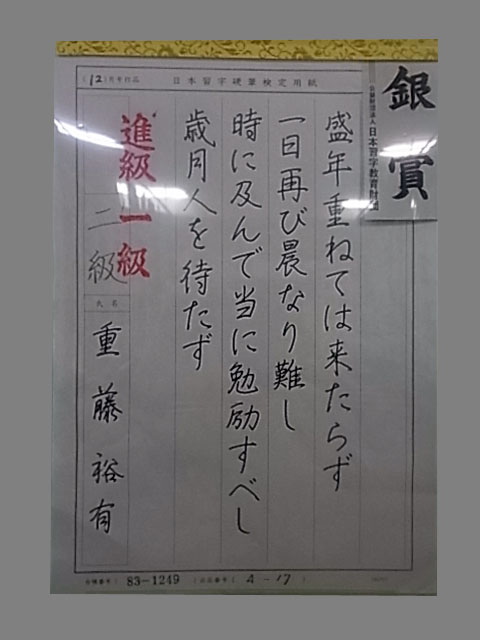 (12)月号作品
日本習字硬筆検定用紙
銀賞
公益財団法人日本習字教育財団
盛年重ねては来たらず
一日再び晨なり難し
時に及んで当に勉励すべし
歳月人を待たず
進級一級
二級
氏名
重藤裕有
83-1249
4-17